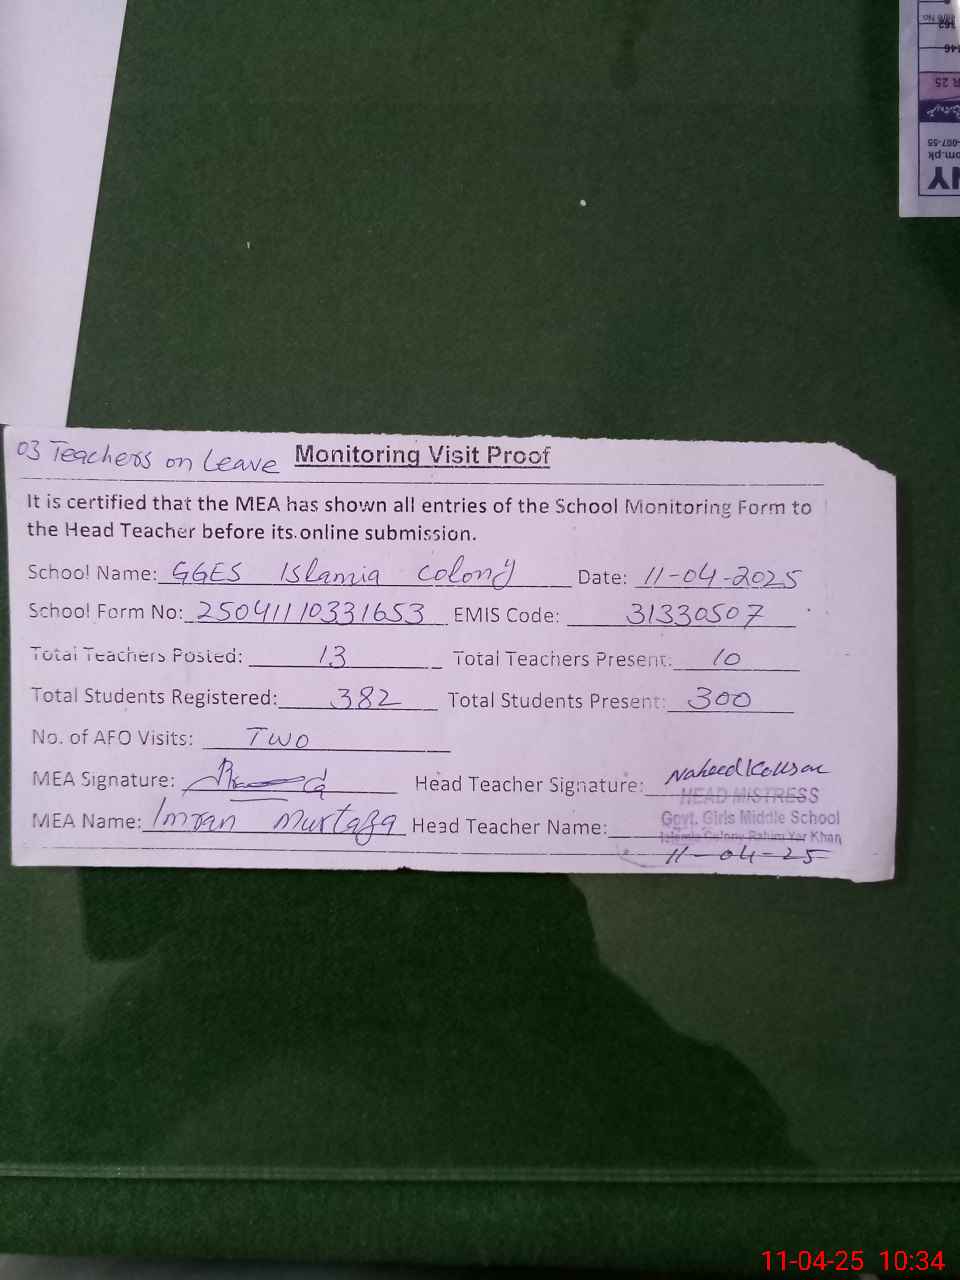 03 Teachers on Leave Monitoring Visit Proof
It is certified that the MEA has shown all entries of the School Monitoring Form to
the Head Teacher before its online submission.
School Name: GGES Islamia Colony Date: 11-04-2025
School Form No: 25041110331653 EMIS Code: 31330507
Total Teachers Posted: 13 Total Teachers Present: 10
Total Students Registered: 382 Total Students Present: 300
No. of AFO Visits: TWO
MEA Signature: Head Teacher Signature: Naheed
HEAD MISTRESS
MEA Name: Imran Murtaza Head Teacher Name: Govt. Girls Middle School
Islamia Colony Rahim Yar Khan
11-04-25
om.pk
R 25
NY
11-04-25 10:34